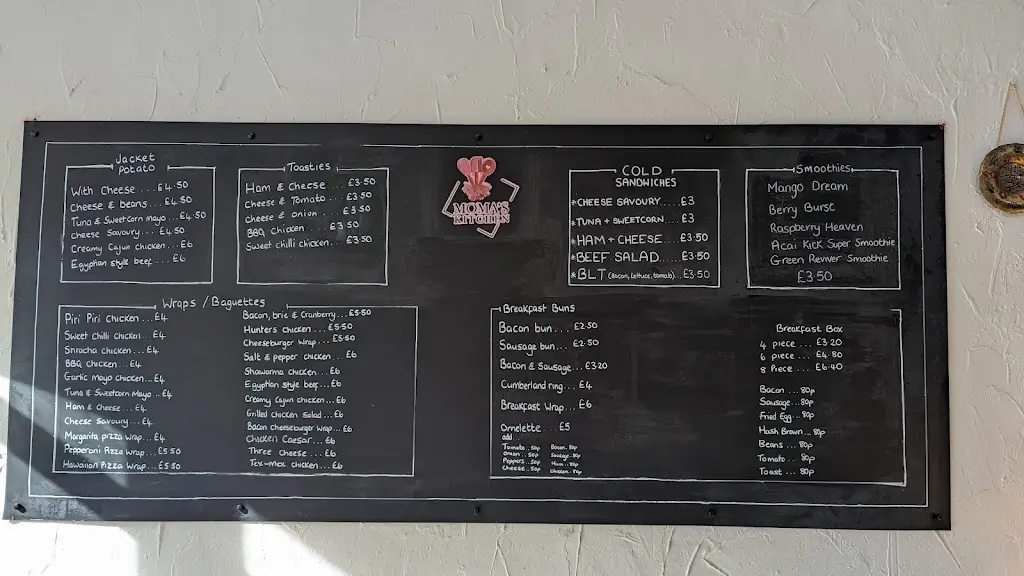 Jacket
Potato
With Cheese ... £4.50
Cheese & beans ... £4.50
Tuna & Sweetcorn mayo ... £4.50
Cheese Savoury ... £4.50
Creamy Cajun chicken ... £6
Egyptian style beef ... £6
Toasties
Ham & Cheese ... £3.50
Cheese & Tomato ... £3.50
cheese & onion ... £3.50
BBQ Chicken ... £3.50
Sweet chilli chicken ... £3.50
MOMA'S
KITCHEN
COLD
SANDWICHES
*CHEESE SAVOURY .... £3
*TUNA + SWEETCORN ... £3
*HAM + CHEESE .... £3.50
*BEEF SALAD .... £3.50
*BLT (Bacon, lettuce, tomato) ... £3.50
Smoothies
Mango Dream
Berry Burst
Raspberry Heaven
Acai Kick Super Smoothie
Green Reviver Smoothie
£3.50
Wraps / Baguettes
Piri Piri Chicken ... £4
Sweet Chilli Chicken ... £4
Sriracha chicken ... £4
BBQ chicken ... £4
Garlic mayo chicken ... £4
Tuna & Sweetcorn Mayo ... £4
Ham & Cheese ... £4
Cheese Savoury ... £4
Margarita pizza wrap ... £4
Pepperoni Pizza Wrap ... £5.50
Hawaiian Pizza Wrap ... £5.50
Bacon, brie & Cranberry ... £5.50
Hunters chicken ... £5.50
Cheeseburger Wrap ... £5.50
Salt & pepper chicken ... £6
Shawarma chicken ... £6
Egyptian style beef ... £6
Creamy Cajun chicken ... £6
Grilled chicken Salad ... £6
Bacon cheeseburger Wrap ... £6
Chicken Caesar ... £6
Three Cheese ... £6
Tex-mex chicken ... £6
Breakfast Buns
Bacon bun ... £2.50
Sausage bun ... £2.50
Bacon & Sausage ... £3.20
Cumberland ring ... £4
Breakfast Wrap ... £6
Omelette ... £5
add...
Tomato .. 50p Bacon .. 80p
Onion .. 50p Sausage .. 80p
Peppers .. 50p Ham .. 80p
Cheese .. 50p Chicken .. 80p
Breakfast Box
4 piece .... £3.20
6 piece .... £4.80
8 Piece .... £6.40
Bacon .... 80p
Sausage ... 80p
Fried Egg ... 80p
Hash Brown ... 80p
Beans ... 80p
Tomato ... 80p
Toast ... 80p